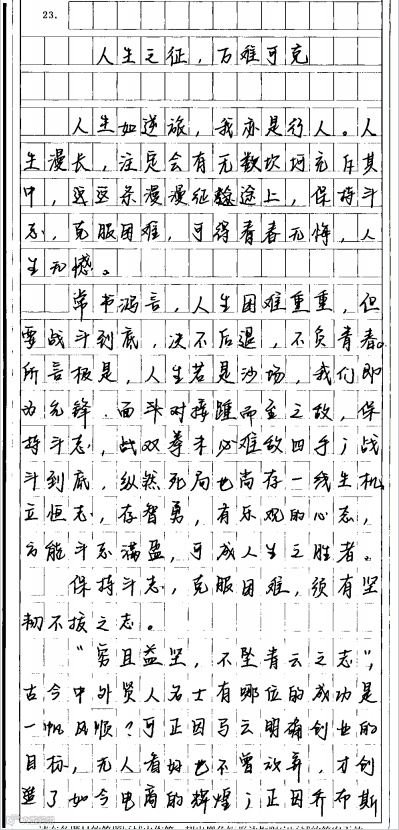 23.
人生之征，万难可克
人生如逆旅，我亦是行人。人
生漫长，注定会有无数坎坷充斥其
中，返在条漫漫征途上，保持斗
志，克服困难，可得青春无悔，人
生无憾。
常书鸿言，人生困难重重，但
要战斗到底，决不后退，不负青春。
所言极是，人生若是沙场，我们即
为先锋，面对接踵而至之敌，保
持斗志，战双拳未必难敌四手；战
斗到底，纵然死局也尚存一线生机
立恒志，存智勇，有乐观的心态，
方能斗志满盈，可成人生之胜者。
保持斗志，克服困难，须有坚
韧不拔之志。
“穷且益坚，不坠青云之志”，
古今中外贤人名士有哪位的成功是
一帆风顺？可正因马云明确创业的
目标，无人看好也不曾放弃，才创
造了如今电商的辉煌；正因乔布斯